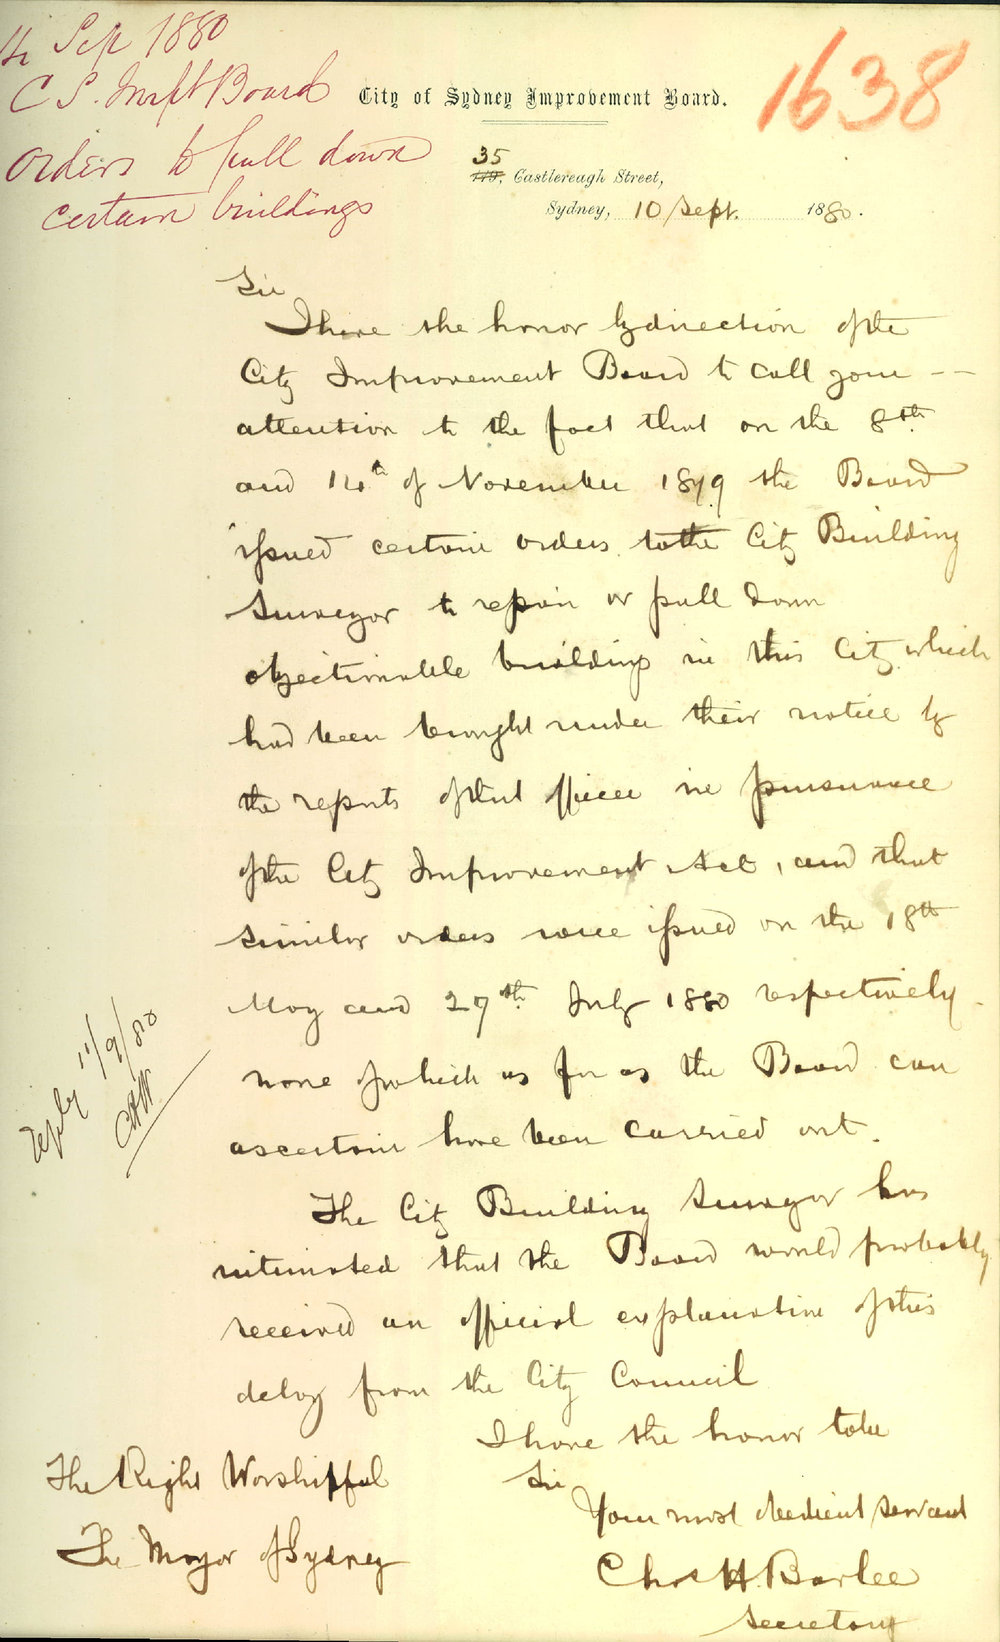 Sep 1880
C. S. Impt Board
Orders to pull down
certain buildings
1638
City of Sydney Improvement Board.
35
119, Castlereagh Street,
Sydney, 10 Sept. 1880.
Sir
I have the honor by direction of the
City Improvement Board to call your
attention to the fact that on the 8th
and 14th of November 1879 the Board
issued certain orders to the City Building
Surveyor to repair or pull down
objectionable buildings in this City which
had been brought under their notice by
the reports of that officer in pursuance
of the City Improvement Act, and that
similar orders were issued on the 18th
May and 27th July 1880 respectively
none of which as far as the Board can
ascertain have been carried out.
The City Building Surveyor has
intimated that the Board would probably
received an official explanation of this
delay from the City Council
I have the honor to be
Sir
Your most obedient servant
Chas H. Barlee
Secretary
The Right Worshipful
The Mayor of Sydney
reply 11/9/80